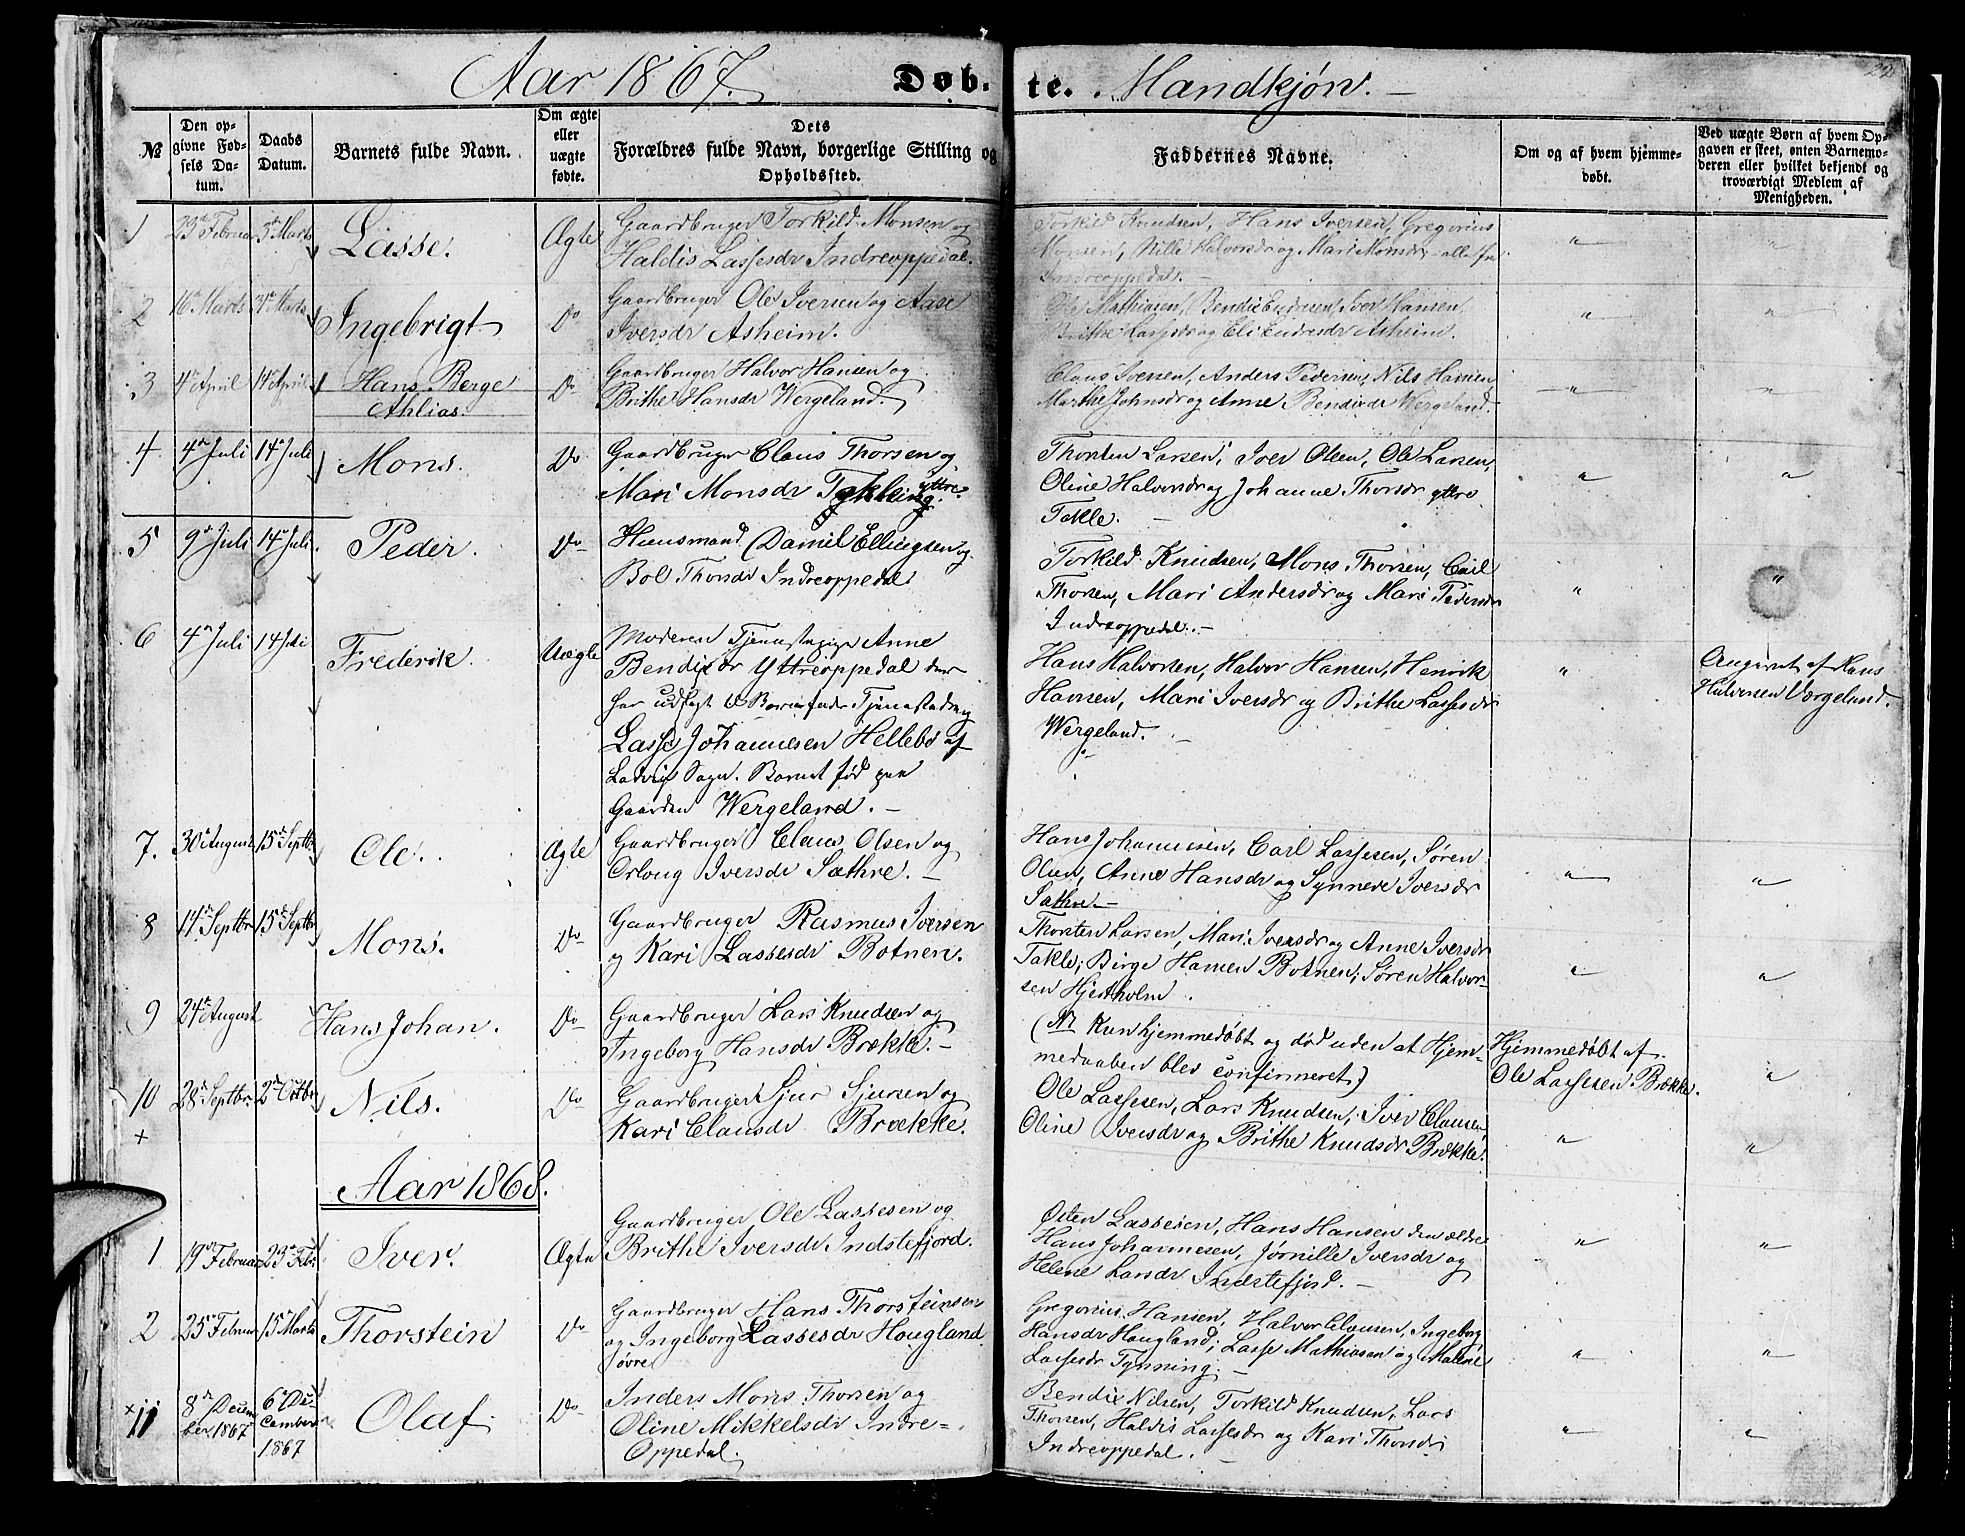 Aar 1867. Døb-te. Mandkjøn. 22
№
Den opgivne Fødsels Datum.
Daabs Datum.
Barnets fulde Navn.
Om ægte eller uægte fødte.
Dets Forældres fulde Navn, borgerlige Stilling og Opholdssted.
Faddernes Navne.
Om og af hvem hjemmedøbt.
Ved uægte Børn af hvem Opgaven er skeet, enten Barnemoderen eller hvilket bekjendt og troværdigt Medlem af Menigheden.
1 23de Februar 3de Marts Lasse. Ægte
Gaardbruger Torkild Monsen og
Haldis Lassesdr Indreoppedal.
Torkild Knudsen, Hans Iversen, Gregorius
Monsen, Nille Halvorsdr og Mari Monsdr alle fra
Indreoppedal. "
2 16de Marts 31te Marts Ingebrigt Do
Gaardbruger Ole Iversen og Aase
Iversdr Asheim.
Ole Mathiasen, Bendix Endresen, Iver Hansen,
Brithe Larsdr og Eli Endresdr Asheim. "
3 4de April 14de April Hans Berge
Athlias. Do
Gaardbruger Halvor Hansen og
Brithe Hansdr Wergeland.
Claus Iversen, Anders Pedersen, Nils Hansen,
Marthe Johnsdr og Anne Bendixdr Wergeland. "
4 4de Juli 14de Juli Mons. Do
Gaardbruger Claus Thorsen og
Mari Monsdr Takle yttre.
Thorsten Larsen, Iver Olsen, Ole Larsen,
Oline Halvorsdr og Johanne Thorsdr yttre
Takle. "
5 9de Juli 14de Juli. Peder. Do
Huusmand Daniel Ellingsen og
Bol Thorsdr Indreoppedal
Torkild Knudsen, Mons Thorsen, Carl
Thorsen, Mari Andersdr og Mari Pedersdr
Indreoppedal. "
6 4de Juli 14 Juli Frederik. Uægte
Moderen Tjenestepige Anne
Bendixdr Yttreoppedal der
har udlagt til Barnefader Tjenestedreng
Lasse Johannesen Hellebø af
Ladvig Sogn. Barnet fød paa
Gaarden Wergeland.
Hans Halvorsen, Halvor Hansen, Henrik
Hansen, Mari Iversdr og Brithe Lassesdr
Wergeland. "
Angivet af Hans
Halvorsen Vergeland.
7. 30te August 15de Septbr Ole. Ægte
Gaardbruger Claus Olsen og
Orloug Iversdr Sæthre.
Hans Johannesen, Carl Lassesen, Søren
Olsen, Anne Hansdr og Synneve Iversdr
Sæthre. "
8 14de Septbr 15de Septbr Mons. Do
Gaardbruger Rasmus Iversen
og Kari Lassesdr Botnen.
Thorsten Larsen, Mari Iversdr og Anne Iversdr
Takle; Birge Hansen Botnen; Søren Halvorsen
Hjertholm. "
9 24de August Hans Johan. Do
Gaardbruger Lars Knudsen og
Ingeborg Hansdr Brække.
(NB Kun hjemmedøbt og død uden at Hjemmedaaben
blev confirmeret)
Hjemmedøbt af
Ole Lassesen Brække. "
10 28de Septbr. 2den Octbr Nils. Do
+
Gaardbruger Sjur Sjursen og
Kari Clausdr Brække.
Ole Lassesen, Lars Knudsen, Iver Clausen,
Oline Iversdr og Brithe Knudsdr Brække. "
Aar 1868.
1 19de Februar 23de Febr. Iver. Ægte
Gaardbruger Ole Lassesen og
Brithe Iversdr Indstefjord.
Østen Lassesen, Hans Hansen den ældre
Hans Johannesen, Jørnille Iversdr og
Helene Larsdr Indstefjord. "
2 25de Februar 15de Marts Thorstein Do
Gaardbruger Hans Thorsteinsen
og Ingeborg Lassesdr Hougland
øvre
Gregorius Hansen, Halvor Clausen, Ingeborg
Hansdr Hougland; Lasse Mathiasen og Malene
Lassesdr Tynning. "
× 11 8de December 1867 6te December 1867 Olaf Do
Inders Mons Thorsen og
Oline Mikkelsdr Indre-
Oppedal.
Bendix Nilsen, Torkild Knudsen, Lars
Thorsen, Haldis Lassesdr og Kari Thorsdr
Indreoppedal. "